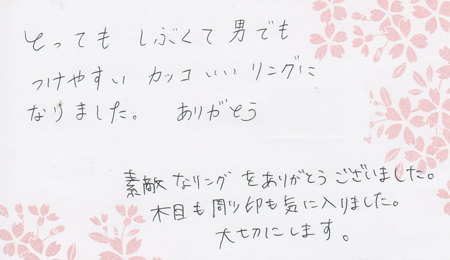 とってもしぶくて男でも
つけやすいカッコいいリングに
なりました。ありがとう
素敵なリングをありがとうございました。
木目も彫り印も気に入りました。
大切にします。